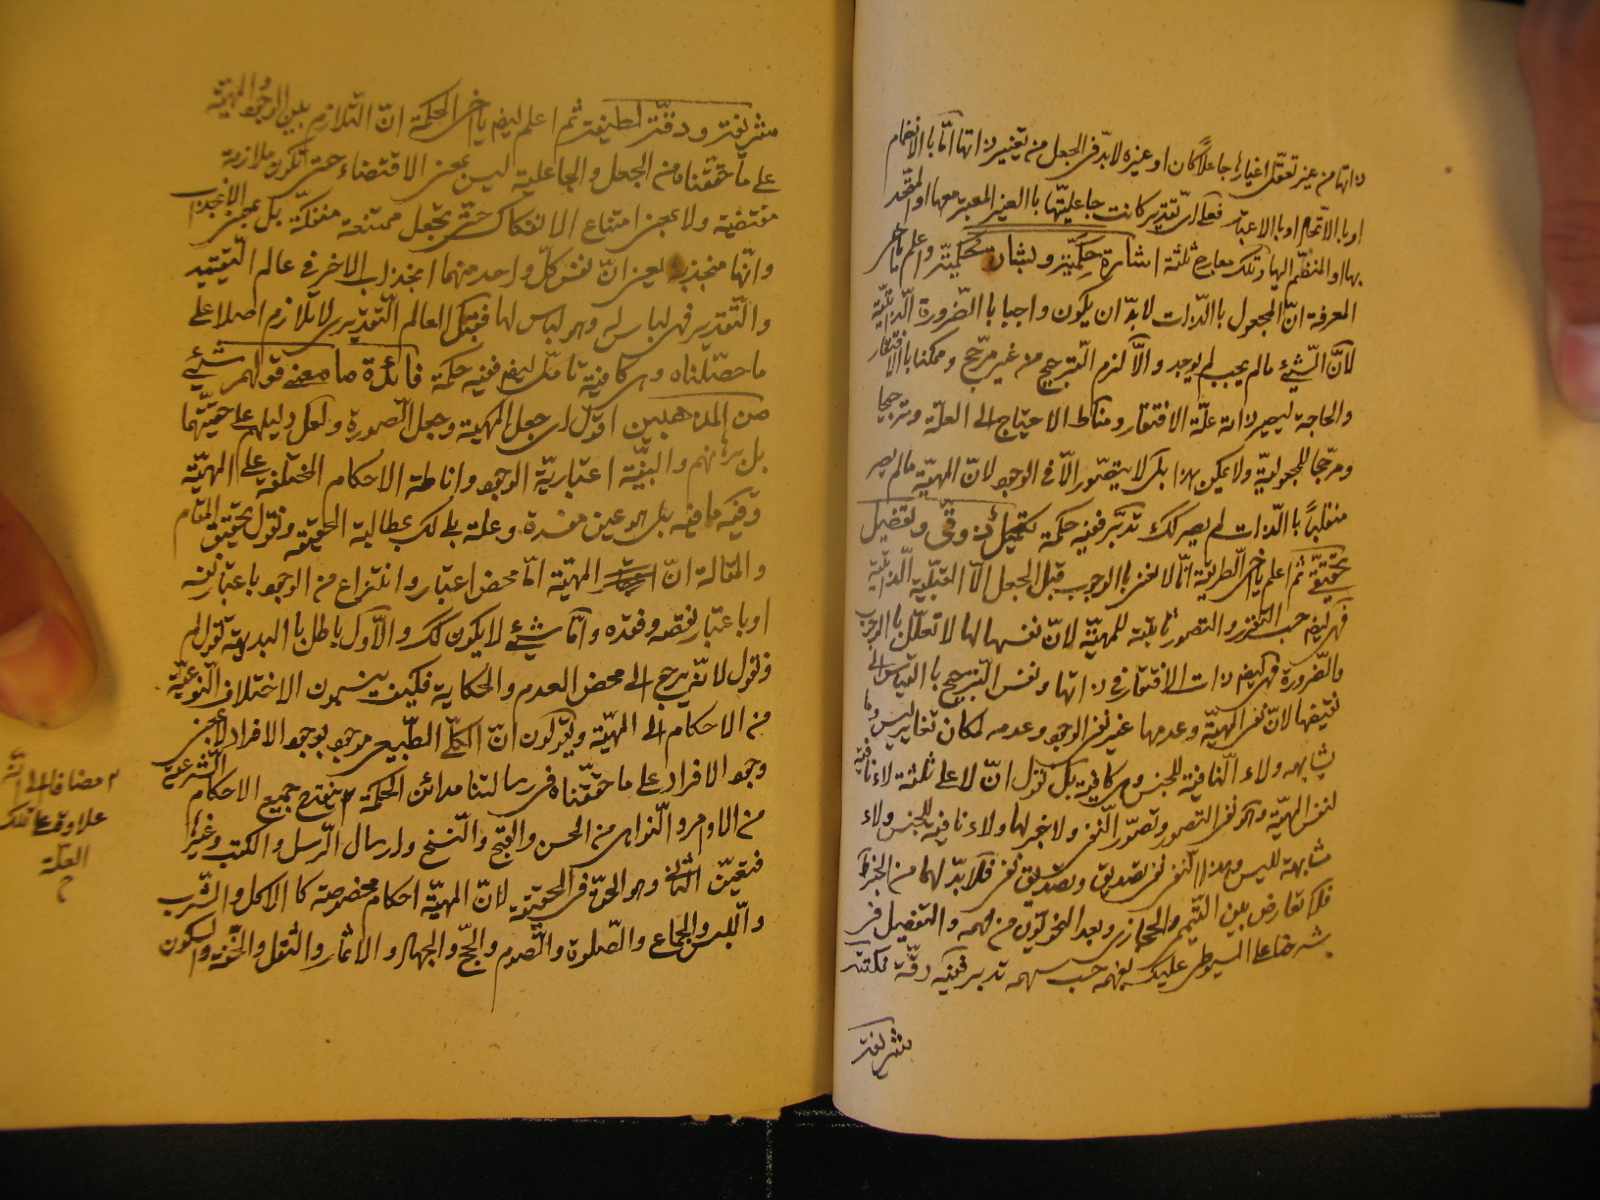 ذاتها من غير تعقل اغيارها جاعلا كان او غيره لابد في الجعل من تعيين ذاتها اما بالانضمام
او بالاتمام او بالاعتبار فعلى اي تقدير كانت جاعليتها بالغير المعتبر معها او المتحد
بها او المنظم اليها وتلك معارج ثلثة اشارة حكمية وبشارة حكمية واعلم يا اخي
المعرفة ان المجعول بالذات لابد ان يكون واجبا بالضرورة الذاتية
لان الشئ ما لم يجب لم يوجد والا لزم الترجيح من غير مرجح وممكنا بالافتقار
والحاجة ليصير ذاته علة الافتقار ومناط الاحتياج الى العلة وترجيحا
ومرجحا للمجعولية ولا يمكن هذا بل لا يتصور الا في الوجود لان المهية ما لم يصر
منقلبا بالذات لم يصر كك تدبر ففيه حكمة تكميل ذوقي وتفصيل
تحقيقي ثم اعلم يا اخي الطريقة انا لا نعني بالوجوب قبل الجعل الا القبلية الذاتية
فهي ايضا حسب التقرر والتصور ثابتة للمهية لان نفسها لها لا تعلل بالوجوب
والضرورة فهي ايضا ذات الافتقار في ذاتها ونفس الترجيح بالقياس الى
نقيضها لان نفي المهية وعدمها غير نفي الوجود وعدمه لمكان تغاير ليس وما
شابهه ولاء النافية للجنس وهي كافية بل نقول ان لا على ثلثة لاء نافية
لنفس المهية وهو نفي التصور وتصور النفي ولا خبر لها ولاء نافية للجنس ولاء
مشابهة لليس وهذا النفي نفي تصديق وتصديق نفي فلابد لهما من الخبر
فلا تعارض بين التميم والحجازي وبعد النحويون من فهمه والتفصيل في
شرحنا على السيوطي عليك بفهمه حسب سهمه تدبر ففيه دقة نكتة
شريفة
شريفة ودقة لطيفة ثم اعلم ايضا يا اخي الحكمة ان التلازم بين الوجود والمهية
على ما حققناه من الجعل والجاعلية ليس بمعنى الاقتضاء حتى تكون ملازمة
مقتضية ولا بمعنى امتناع الانفكاك حتى يجعل ممتنعة منفكة بل بمعنى الانجذاب
وانها منجذبة بمعنى ان نفس كل واحد منهما انجذاب الاخر في عالم التقييد
والتقدير فهي لباس له وهو لباس لها فقبل العالم التقديري لا تلازم اصلا على
ما حصلناه وهي كافية تامل ايضا ففيه حكمة فائدة ما معنى قولهم شيئ
من المذهبين اقول اي جعل المهية وجعل الصورة ولعل دليلهم على حقيتهما
بل برهانهم والبنية اعتبارية الوجود واناطة الاحكام المختلفة على المهية
وفيه ما فيه بل هو عين مفسدة وعلة بل لك بمطالبة الحقيقة ونقول بتحقيق المقام
والمقالة ان المهية اما محض اعتبار وانتزاع من الوجود باعتبار نفسه
او باعتبار نقصه وفقده واما شيئ لا يكون كك والاول باطل بالبديهة نقول لم
فنقول لانه يرجع الى محض العدم والحكاية فكيف ينسبون الاختلاف النوعية
من الاحكام الى المهية ويقولون ان الكلي الطبيعي موجود بوجود الافراد لا بمعنى
وجود الافراد على ما حققناه في رسالتنا مدائن الحكمة ٢ ينقدح جميع الاحكام الشرعية
من الاوامر والنواهي من الحسن والقبح والنسخ وارسال الرسل والكتب وغيرها
فتعين الثاني وهو الحق في الحقيقة لان المهية احكام مخصوصة كالاكل والشرب
واللبس والجماع والصلوة والصوم والحج والجهاد والاثمار والثقل والخفة والسكون
٢ مضافا الى انه
علاوة على تلك
العلة